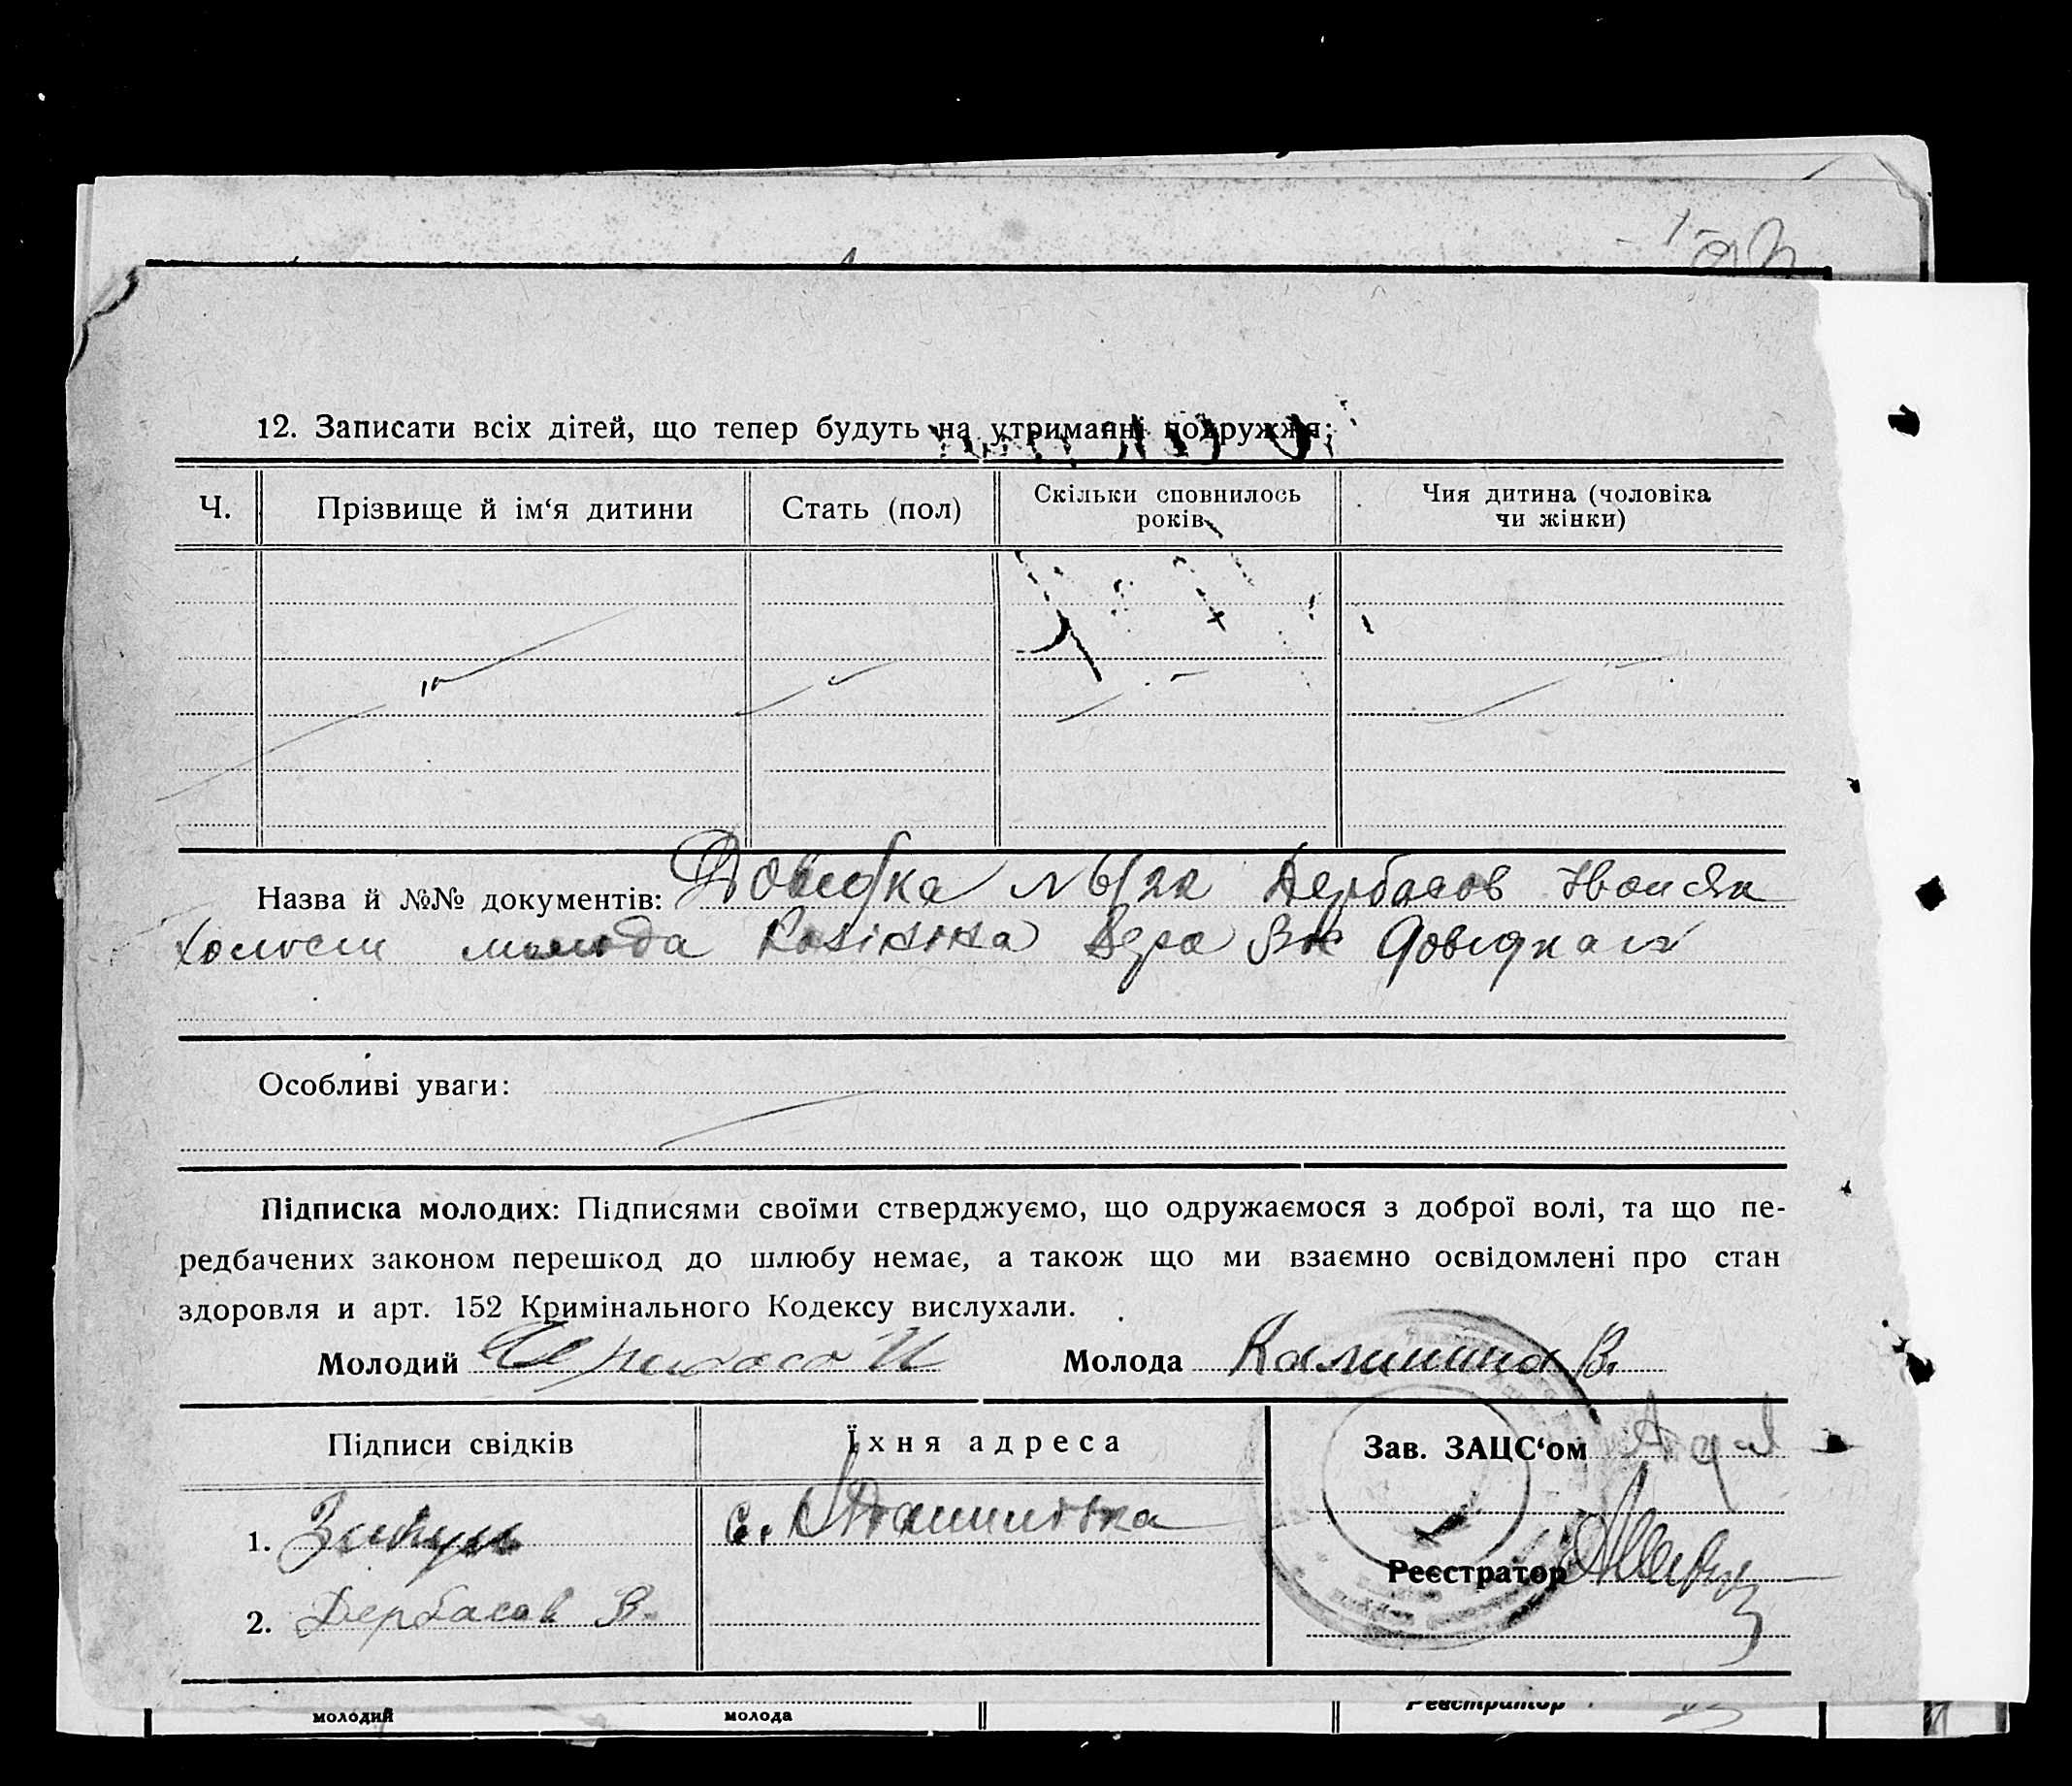 12. Записати всіх дітей, що тепер будуть на утриманні подружжя:
Ч. Прізвище й ім‘я дитини Стать (пол) Скільки сповнилось років Чия дитина (чоловіка чи жінки)
Назва й №№ документів: Довидка № 6/22 Дербасов
молода Вера Довидка
Особливі уваги:
Підписка молодих: Підписями своїми стверджуємо, що одружаємося з доброї волі, та що пе-
редбачених законом перешкод до шлюбу немає, а також що ми взаємно освідомлені про стан
здоровля и арт. 152 Кримінального Кодексу вислухали.
Молодий И Молода Калинина В.
Підписи свідків Їхня адреса Зав. ЗАЦС‘ом
1. с.
Реєстратор
2. Дербасов В.
молодий молода Реєстратор